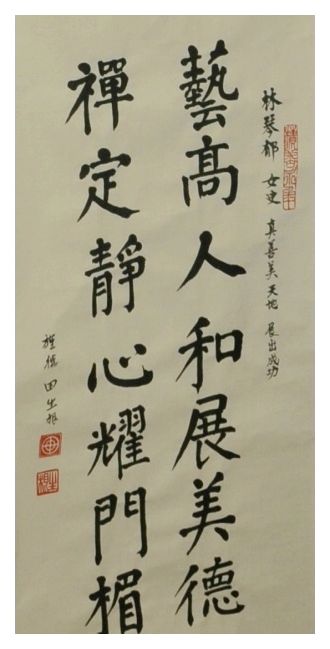 林琴郁 女史 真善美天地 展出成功
藝高人和展美德
禪定靜心耀門楣
田出振